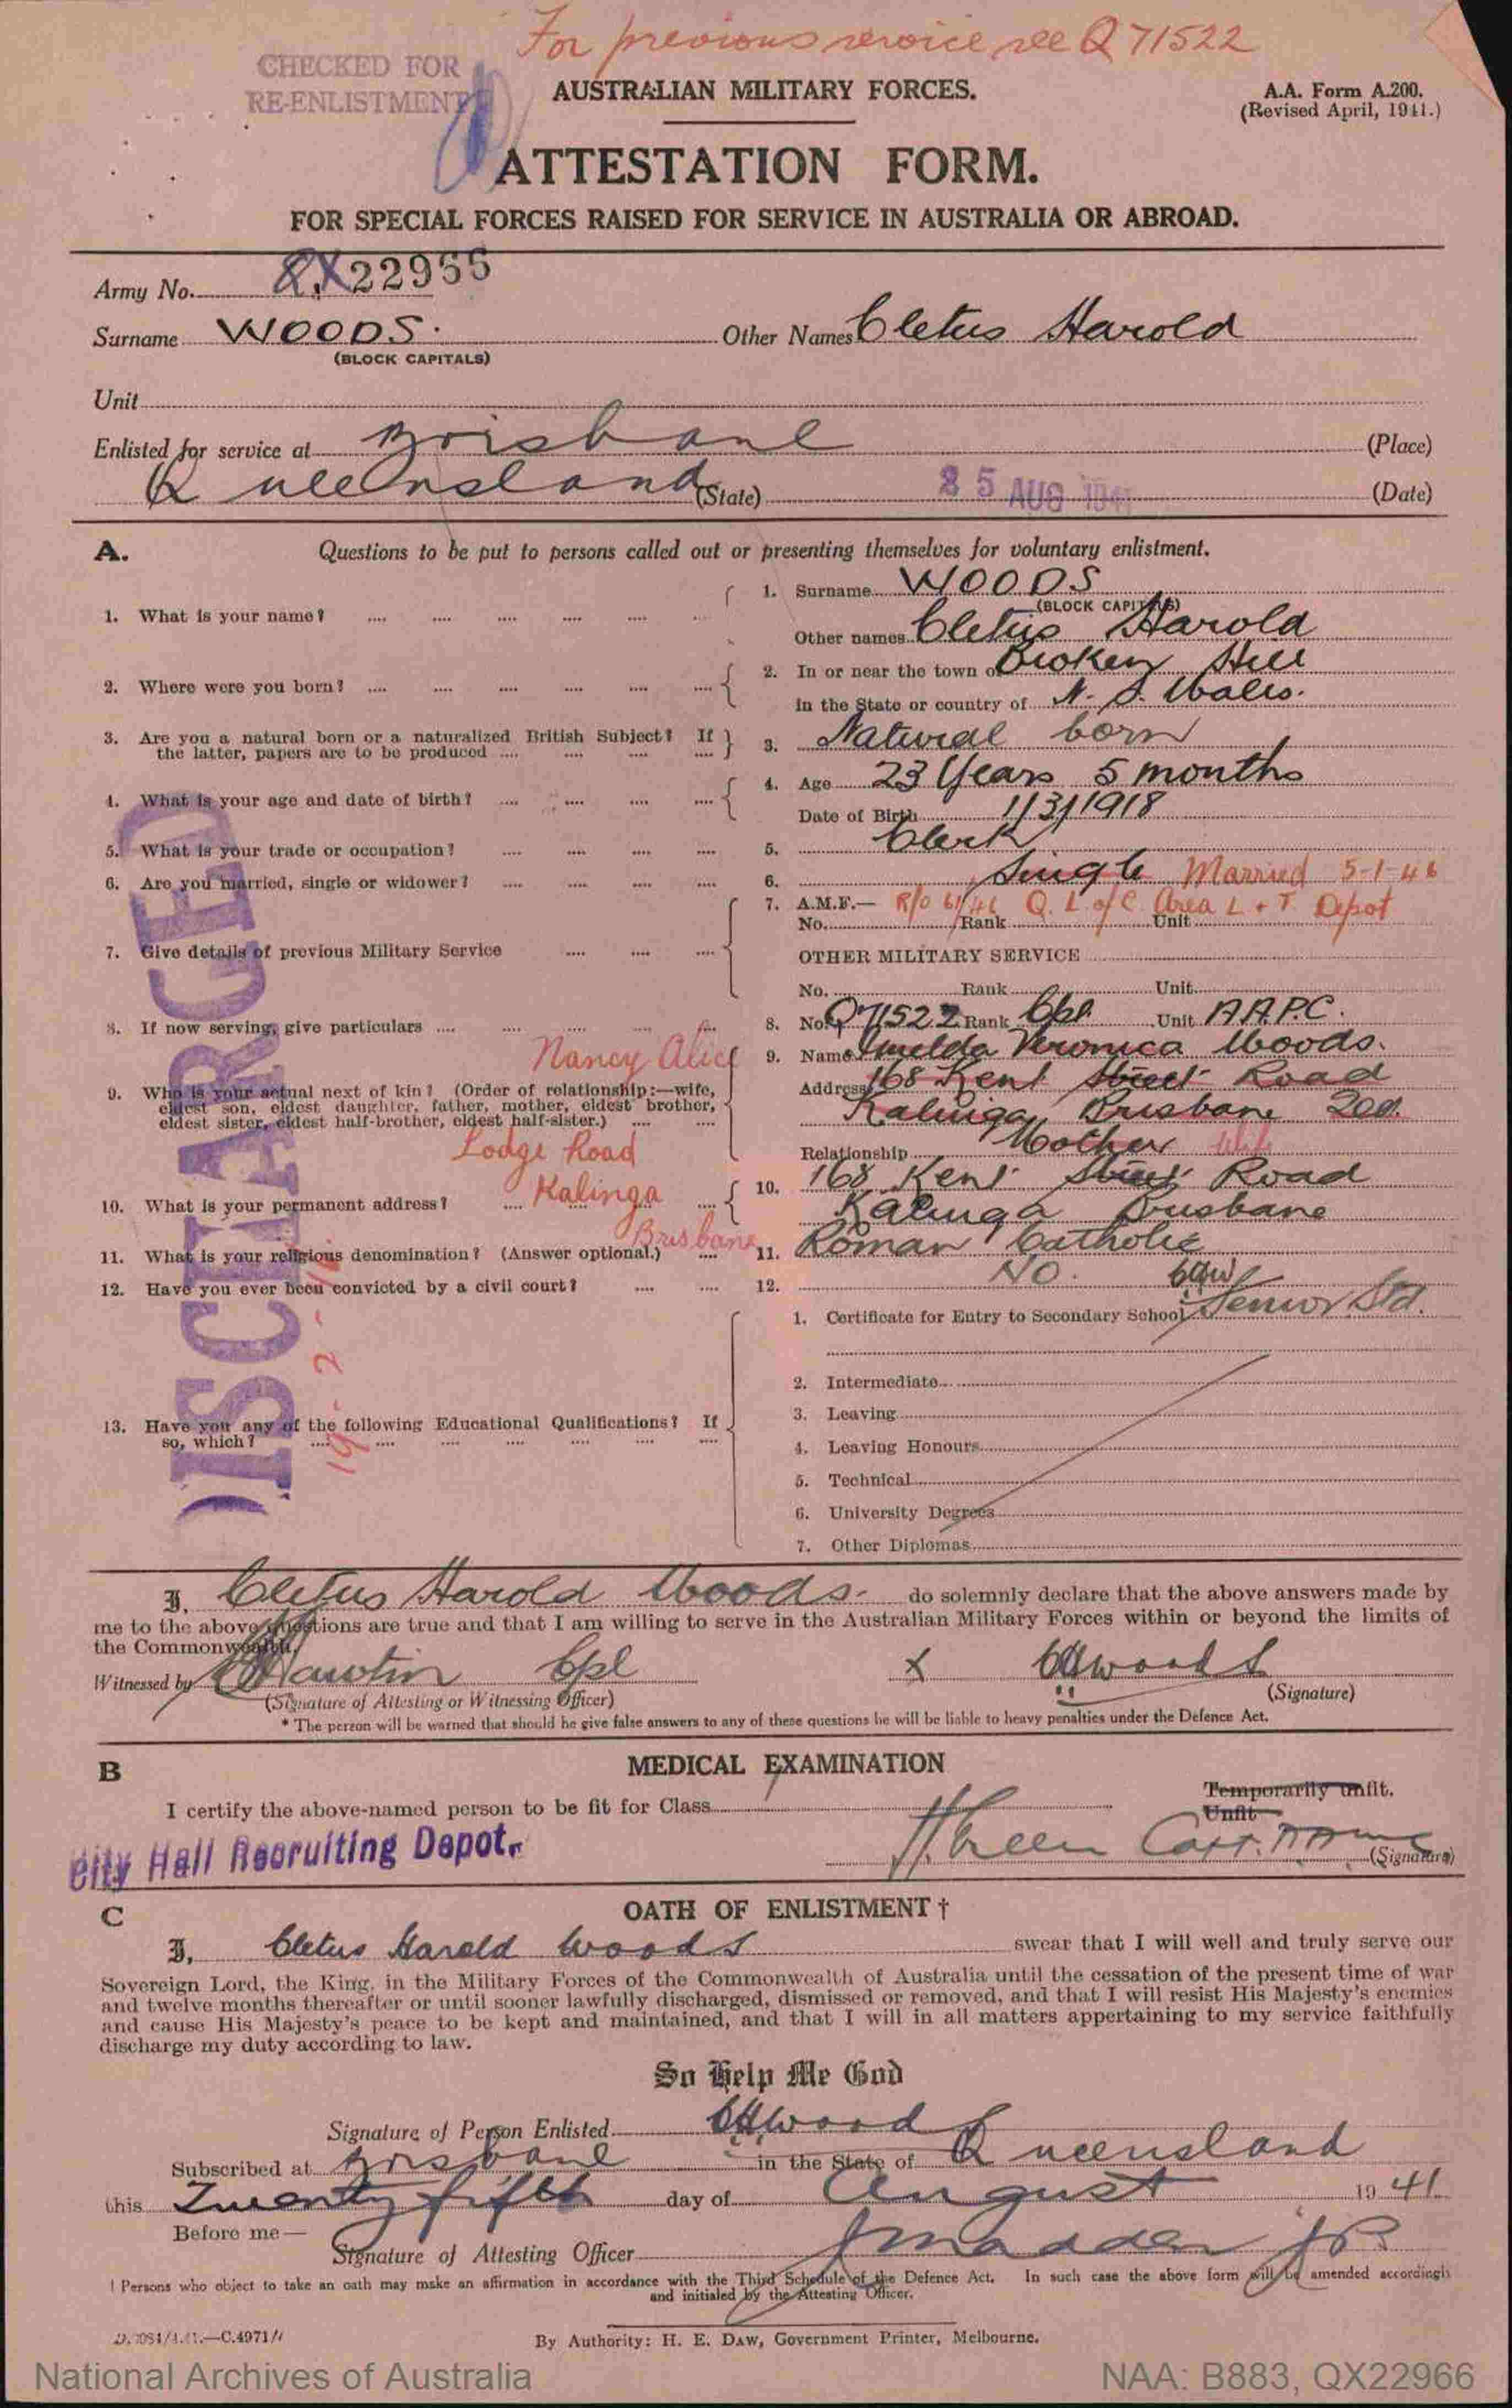 For previous service see Q 71522
CHECKED FOR
RE-ENLISTMENT
AUSTRALIAN MILITARY FORCES.
A.A. Form A.200.
(Revised April, 1941.)
ATTESTATION FORM.
FOR SPECIAL FORCES RAISED FOR SERVICE IN AUSTRALIA OR ABROAD.
Army No. QX22966
Surname WOODS. Other Names Cletus Harold
(BLOCK CAPITALS)
Unit
Enlisted for service at Brisbane (Place)
Queensland (State) 25 AUG 1941 (Date)
A. Questions to be put to persons called out or presenting themselves for voluntary enlistment.
1. What is your name? 1. Surname WOODS
(BLOCK CAPITALS)
Other names Cletus Harold
2. Where were you born? 2. In or near the town of Broken Hill
in the State or country of N. S. Wales.
3. Are you a natural born or a naturalized British Subject? If the latter, papers are to be produced 3. Natural born
4. What is your age and date of birth? 4. Age 23 Years 5 months
Date of Birth 1/3/1918
5. What is your trade or occupation? 5. Clerk
6. Are you married, single or widower? 6. Single Married 5-1-46
7. Give details of previous Military Service 7. A.M.F.— R/O 61/46 Q. L of C Area L + T Depot
No. Rank Unit
OTHER MILITARY SERVICE
No. Rank Unit
8. If now serving, give particulars 8. No. Q71522 Rank Cpl Unit A.A.P.C.
Nancy Alice
9. Who is your actual next of kin? (Order of relationship:—wife, eldest son, eldest daughter, father, mother, eldest brother, eldest sister, eldest half-brother, eldest half-sister.) 9. Name Imelda Veronica Woods.
Address 168 Kent Street Road
Kalinga Brisbane Qld.
Relationship Mother Wife
Lodge Road
Kalinga
Brisbane
10. What is your permanent address? 10. 168 Kent Street Road
Kalinga Brisbane
11. What is your religious denomination? (Answer optional.) 11. Roman Catholic
12. Have you ever been convicted by a civil court? 12. No. CHW
13. Have you any of the following Educational Qualifications? If so, which?
1. Certificate for Entry to Secondary School Senior Std.
2. Intermediate
3. Leaving
4. Leaving Honours
5. Technical
6. University Degrees
7. Other Diplomas
DISCHARGED
I, Cletus Harold Woods. do solemnly declare that the above answers made by
me to the above questions are true and that I am willing to serve in the Australian Military Forces within or beyond the limits of
the Commonwealth.
Witnessed by Cpl x CHWoods
(Signature of Attesting or Witnessing Officer) (Signature)
* The person will be warned that should he give false answers to any of these questions he will be liable to heavy penalties under the Defence Act.
B MEDICAL EXAMINATION
I certify the above-named person to be fit for Class 1
Temporarily unfit.
Unfit
City Hall Recruiting Depot.
H. Green Capt. (Signature)
C OATH OF ENLISTMENT †
I, Cletus Harold Woods swear that I will well and truly serve our
Sovereign Lord, the King, in the Military Forces of the Commonwealth of Australia until the cessation of the present time of war
and twelve months thereafter or until sooner lawfully discharged, dismissed or removed, and that I will resist His Majesty's enemies
and cause His Majesty's peace to be kept and maintained, and that I will in all matters appertaining to my service faithfully
discharge my duty according to law.
So Help Me God
Signature of Person Enlisted CHWoods
Subscribed at Brisbane in the State of Queensland
this Twenty fifth day of August 1941
Before me—
Signature of Attesting Officer J Madden JP
† Persons who object to take an oath may make an affirmation in accordance with the Third Schedule of the Defence Act. In such case the above form will be amended accordingly
and initialed by the Attesting Officer.
By Authority: H. E. Daw, Government Printer, Melbourne.
National Archives of Australia
NAA: B883, QX22966